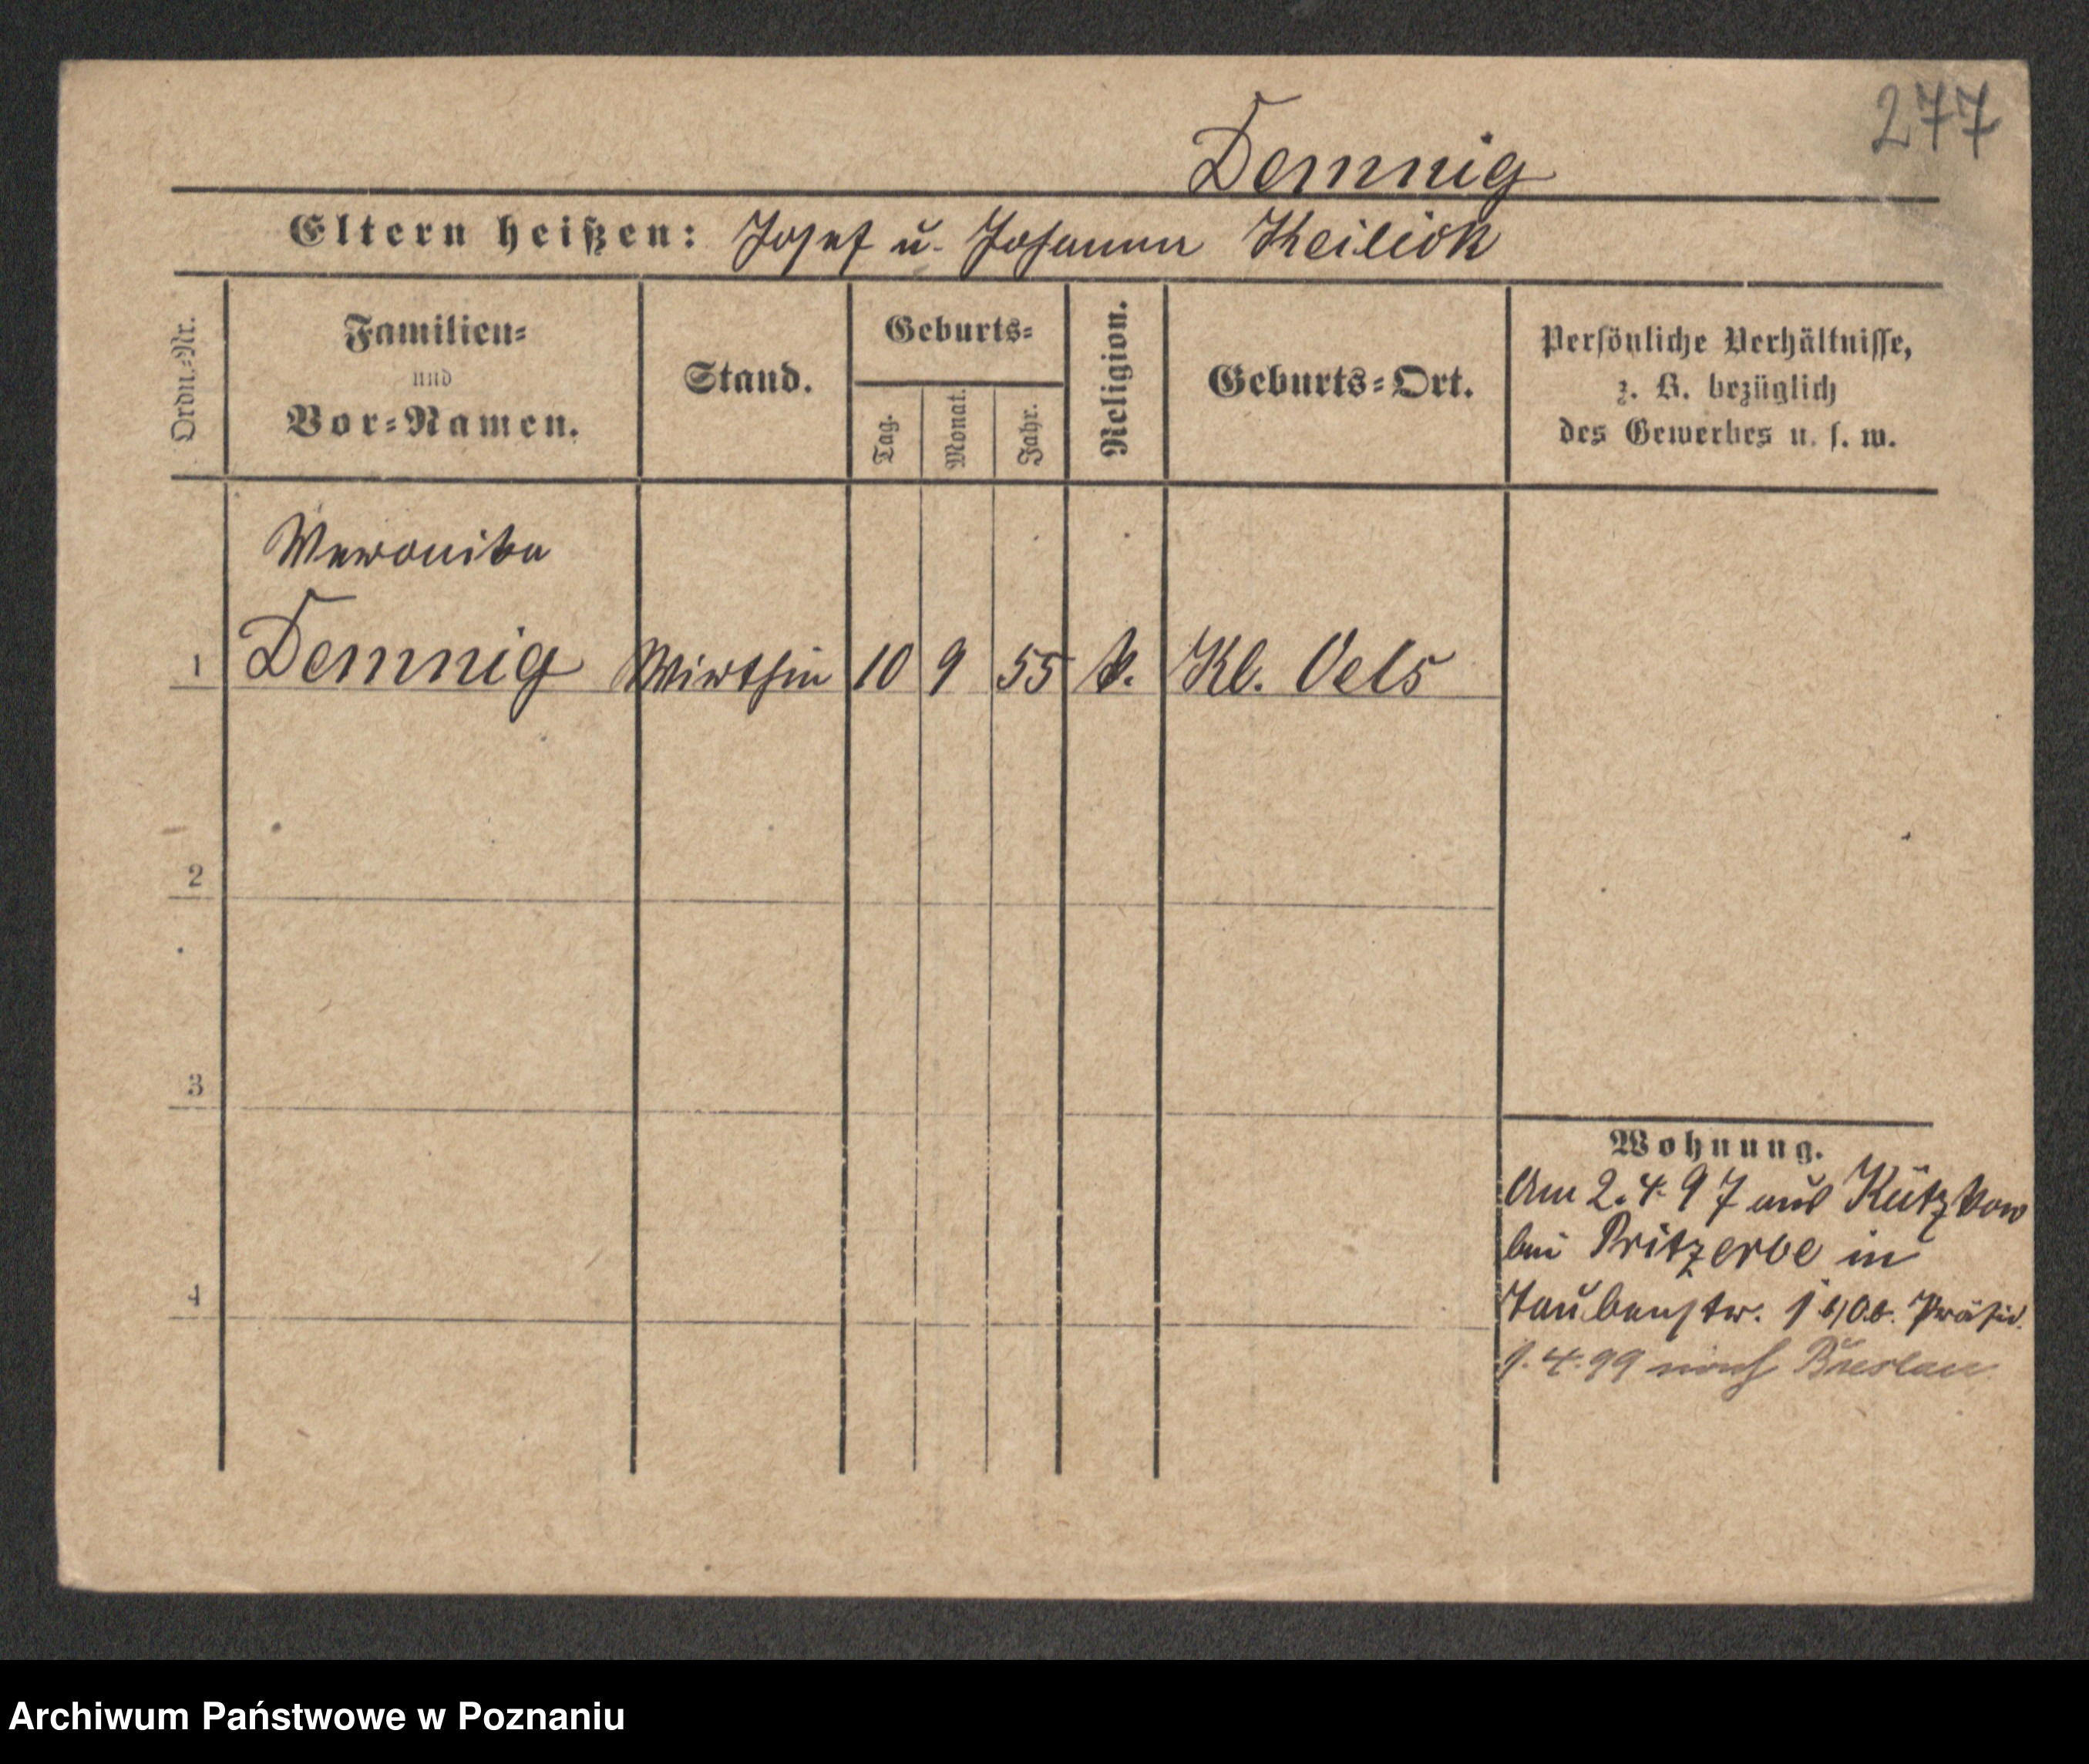 277
Demnig
Eltern heißen: Josef u. Johanna Keilick
Ordn.-Nr.
Familien-
und
Vor-Namen.
Stand.
Geburts-
Tag.
Monat.
Jahr.
Religion.
Geburts-Ort.
Persönliche Verhältnisse,
z. B. bezüglich
des Gewerbes u. s. w.
Weronika
1 Demnig Wirthin 10 9 55 k. Kl. Oels
2
3
4
Wohnung.
Am 2.4.97 aus Kützkow
bei Pritzerbe in
Taubenstr. 1 b/Ob. Präsid.
1.4.99 nach Breslau
Archiwum Państwowe w Poznaniu